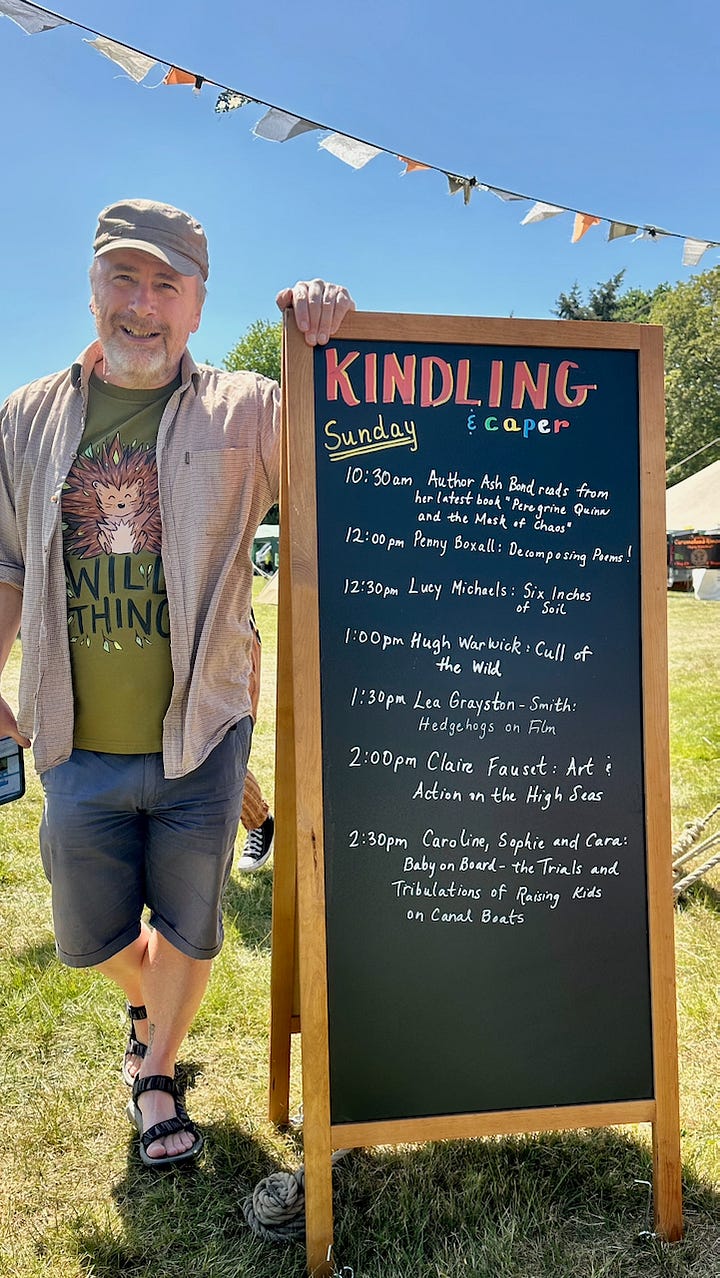 KINDLING
& caper
Sunday
10:30am Author Ash Bond reads from
her latest book "Peregrine Quinn
and the Mask of Chaos"
12:00pm Penny Boxall: Decomposing Poems!
12:30pm Lucy Michaels: Six Inches
of Soil
1:00pm Hugh Warwick: Cull of
the Wild
1:30pm Lea Grayston-Smith:
Hedgehogs on Film
2:00pm Claire Fauset: Art &
Action on the High Seas
2:30pm Caroline, Sophie and Cara:
Baby on Board - the Trials and
Tribulations of Raising Kids
on Canal Boats
WILD
THING